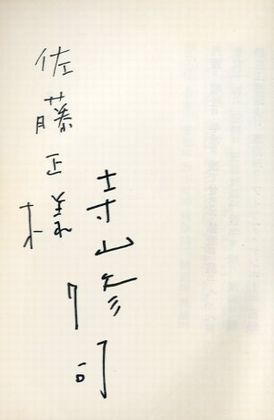 佐藤正様
寺山修司